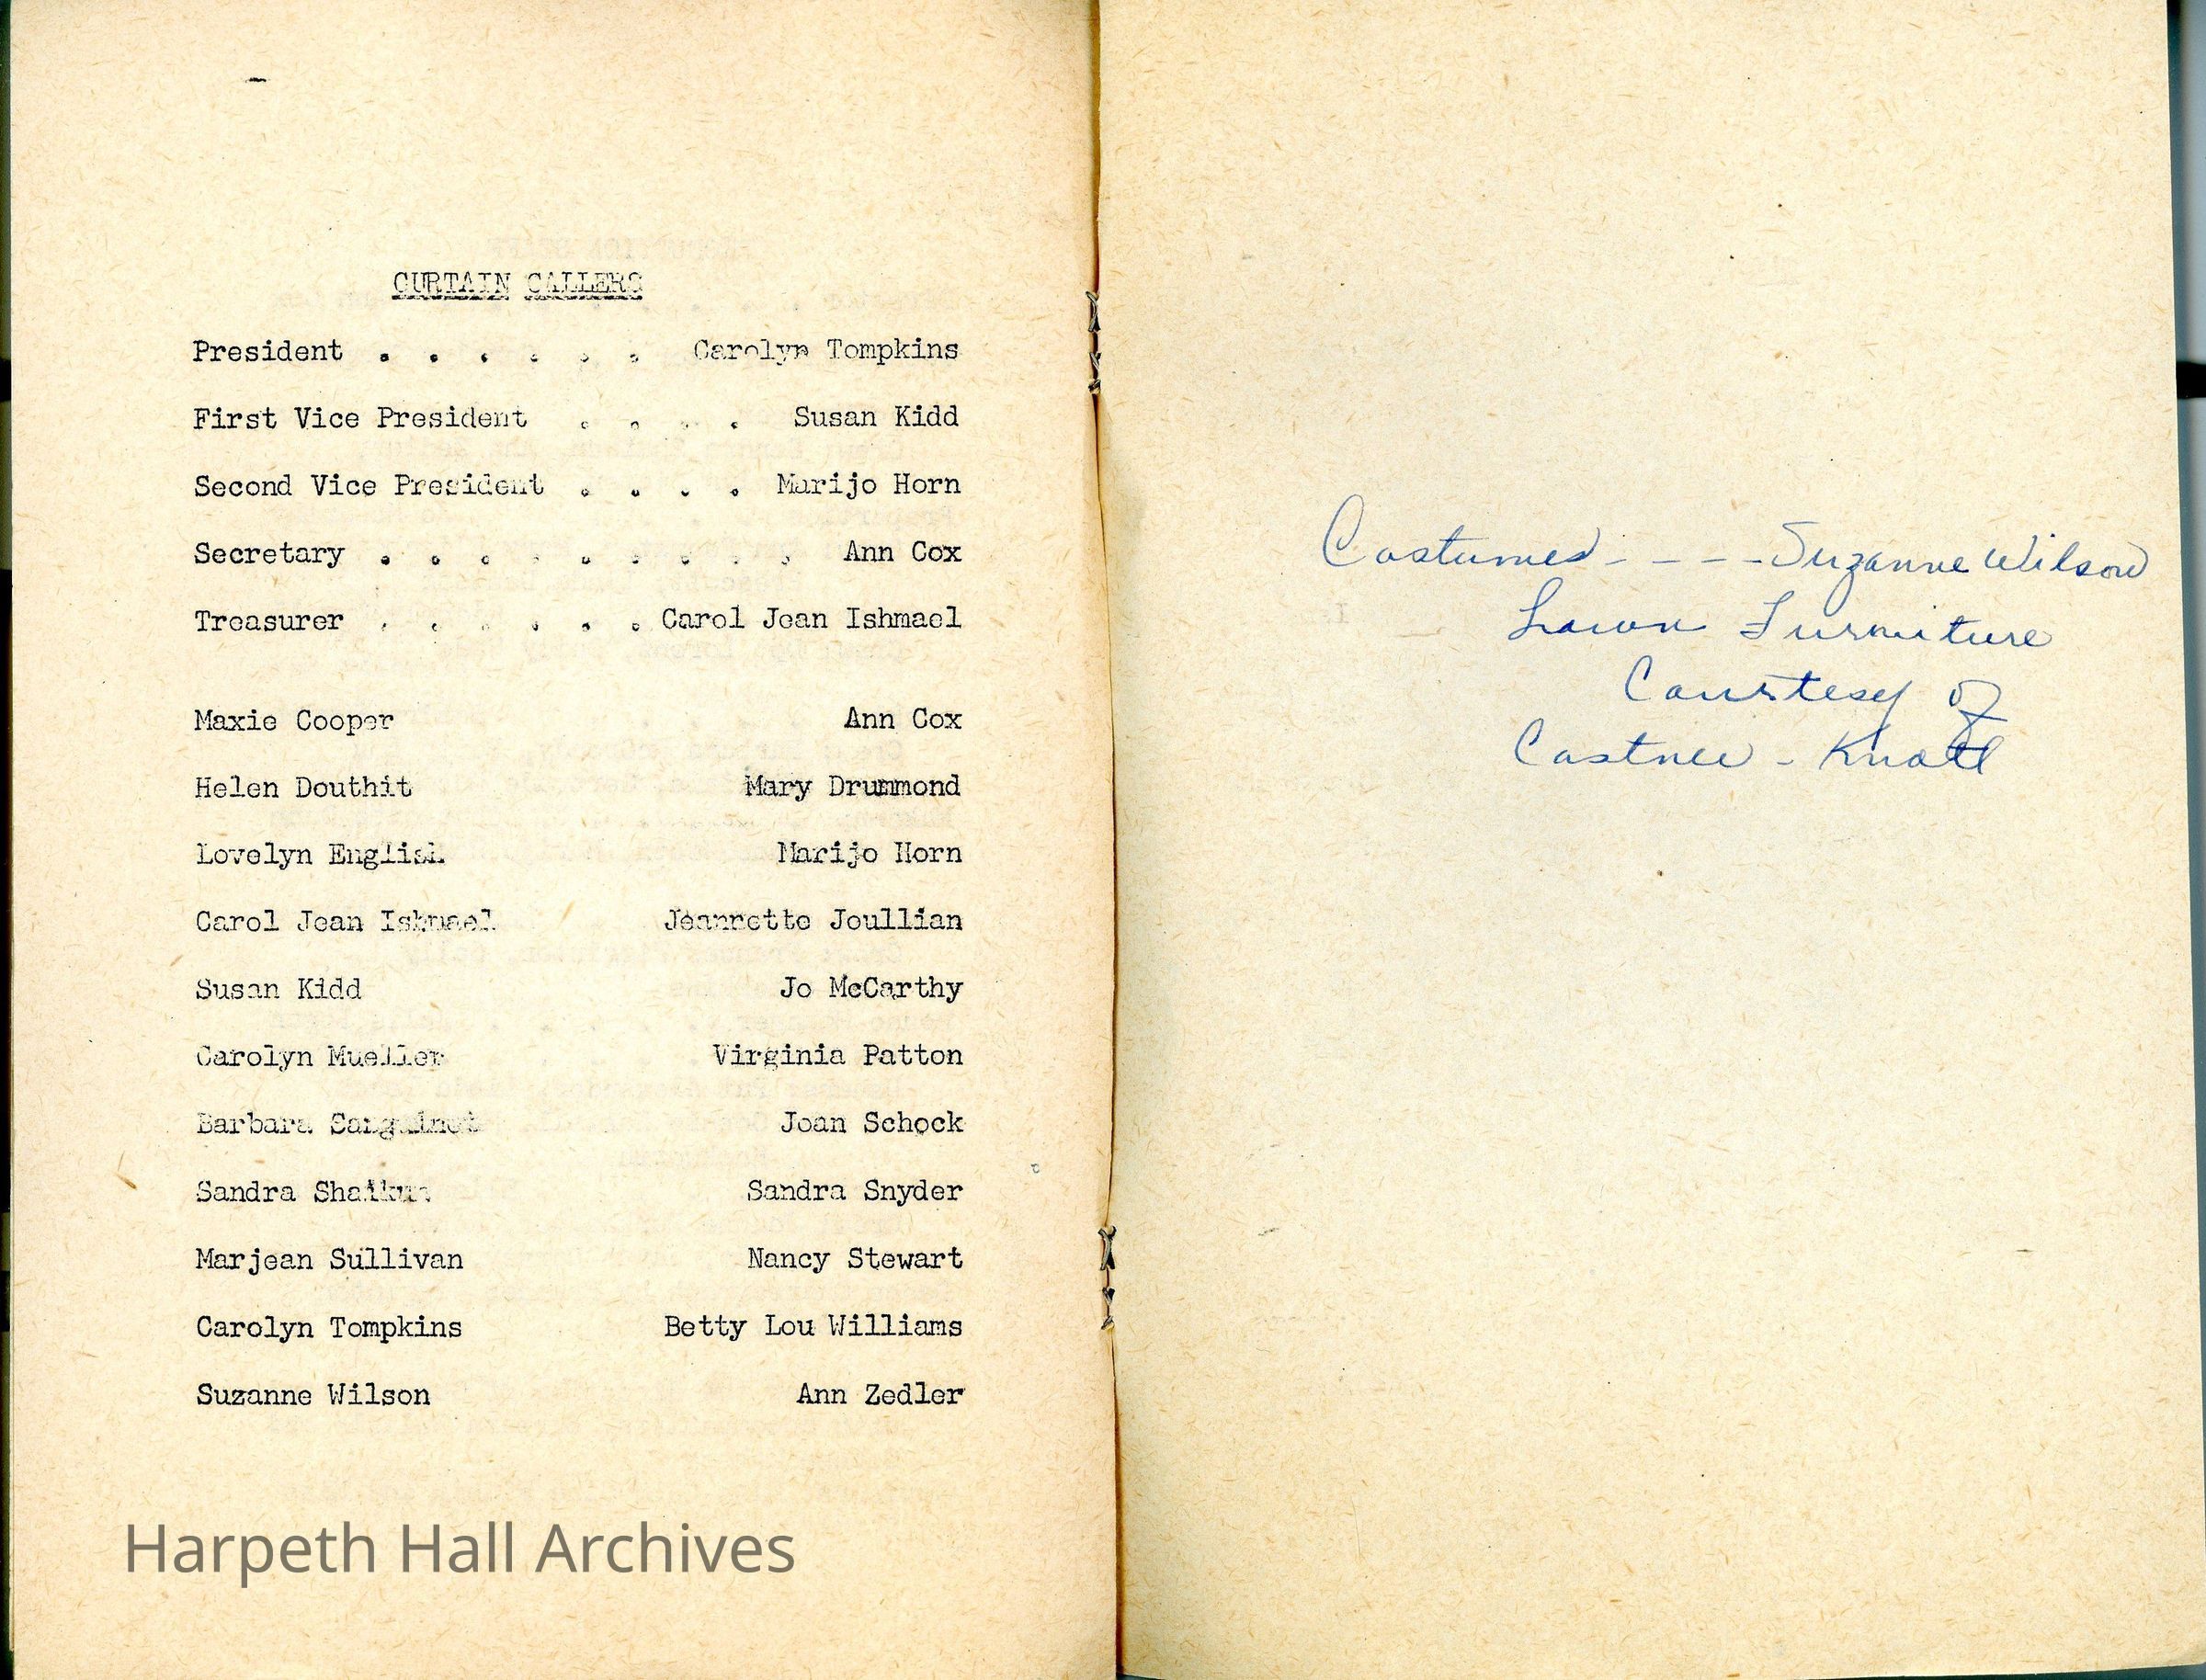 CURTAIN CALLERS
President . . . . . . Carolyn Tompkins
First Vice President . . . . Susan Kidd
Second Vice President . . . . Marijo Horn
Secretary . . . . . . . . . Ann Cox
Treasurer . . . . . . Carol Jean Ishmael
Maxie Cooper Ann Cox
Helen Douthit Mary Drummond
Lovelyn English Marijo Horn
Carol Jean Ishmael Jeannette Joullian
Susan Kidd Jo McCarthy
Carolyn Mueller Virginia Patton
Barbara Joan Schock
Sandra Sandra Snyder
Marjean Sullivan Nancy Stewart
Carolyn Tompkins Betty Lou Williams
Suzanne Wilson Ann Zedler
Harpeth Hall Archives
Costumes - - - - Suzanne Wilson
Lawn Furniture
Courtesy of
Castner - Knott